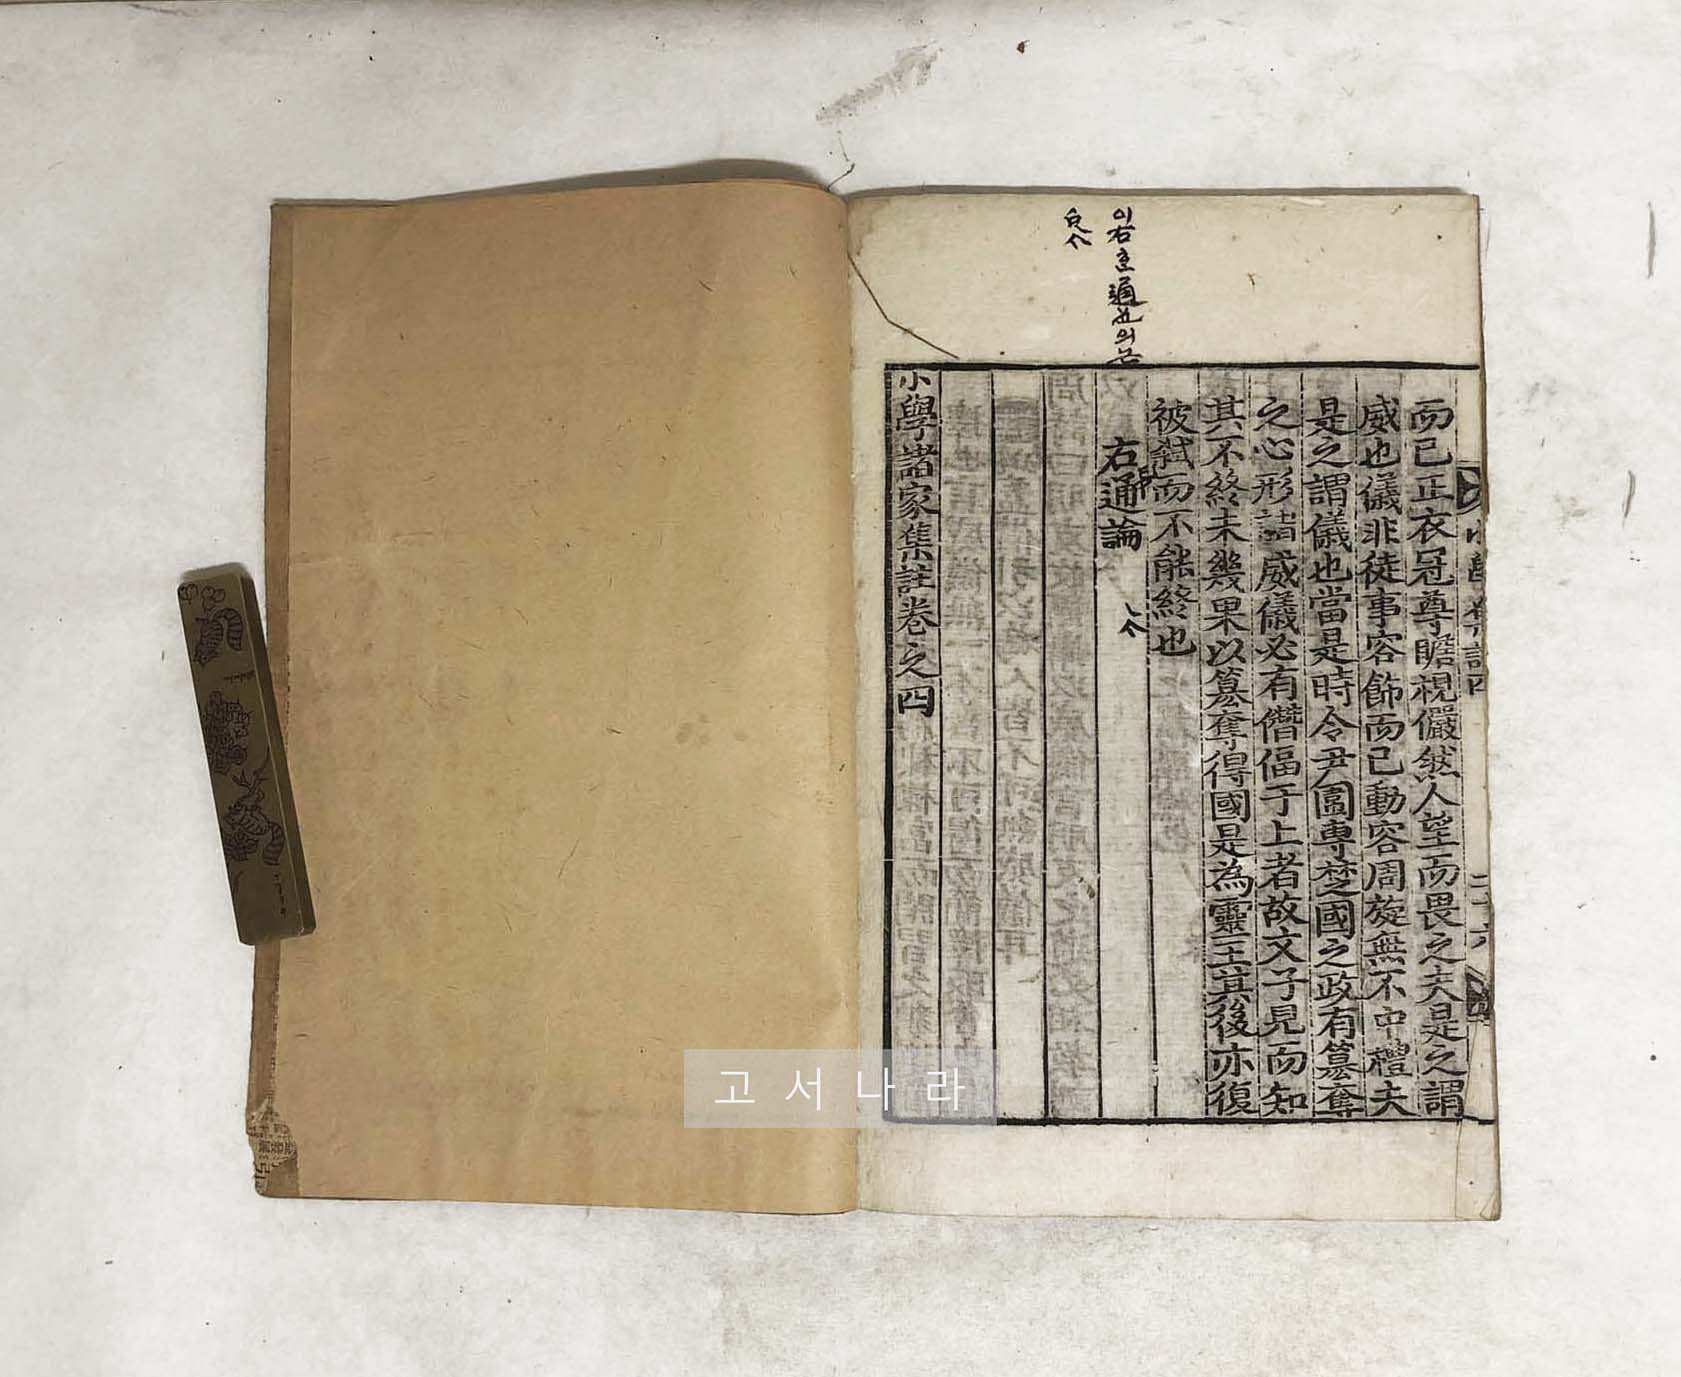 而已正衣冠尊瞻視儼然人望而畏之夫是之謂
威也儀非徒事容飾而已動容周旋無不中禮夫
是之謂儀也當是時令尹圍專楚國之政有簒奪
之心形諸威儀必有僭偪于上者故文子見而知
其不終未幾果以簒奪得國是為靈王其後亦復
被弑而不能終也
右通論
小學諸家集註卷之四
고서나라